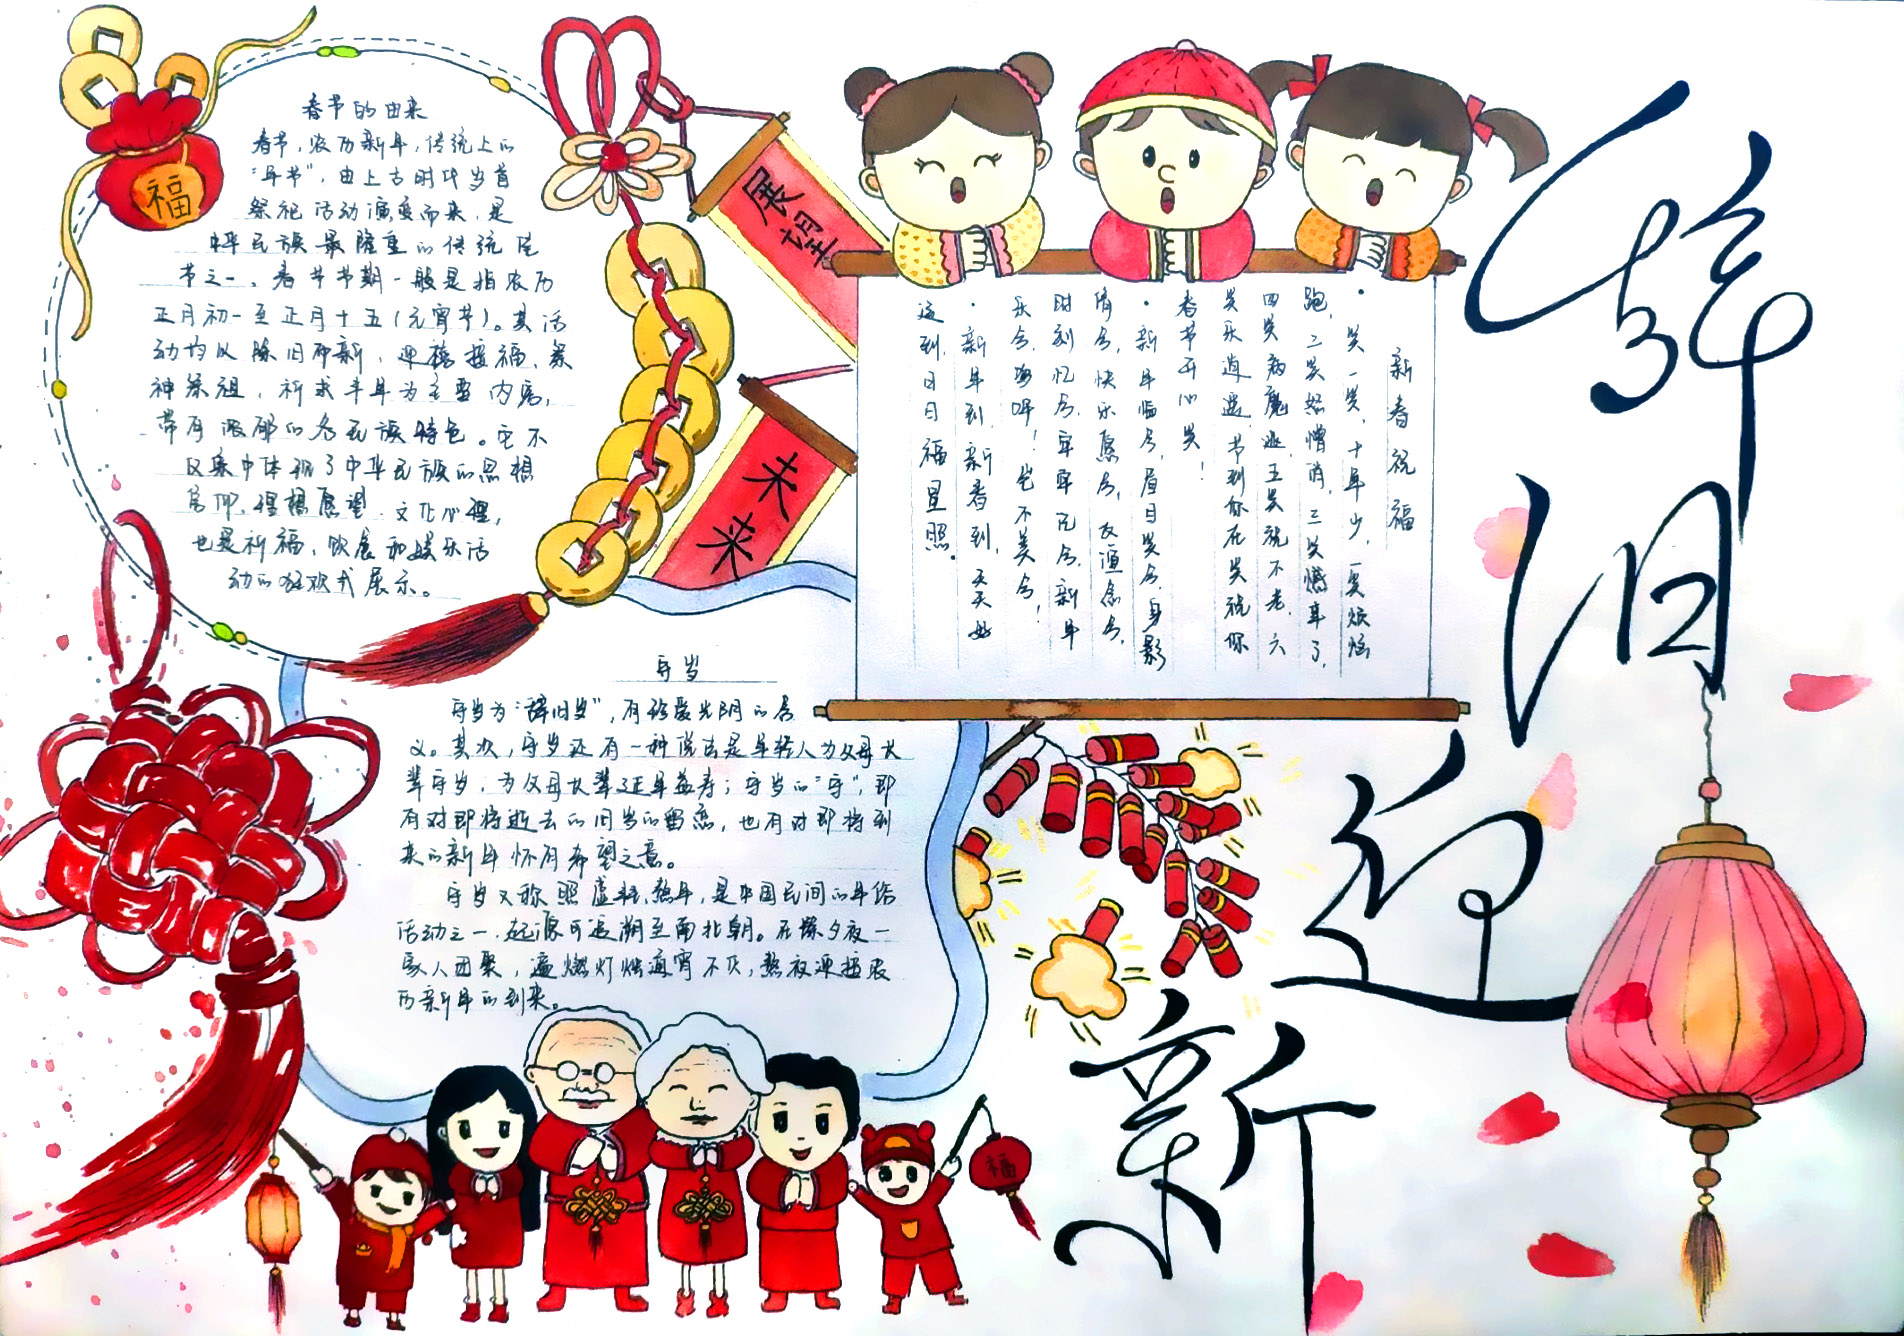 福
春节的由来
春节，农历新年，传统上的
“年节”，由上古时代岁首
祭祀活动演变而来，是
中华民族最隆重的传统佳
节之一，春节节期一般是指农历
正月初一至正月十五（元宵节）。其活
动均以除旧布新，迎禧接福、祭
神祭祖，祈求丰年为主要内容，
带有浓郁的各民族特色。它不
仅集中体现了中华民族的思想
信仰，理想愿望，文化心理，
也是祈福、饮食和娱乐活
动的狂欢式展示。
展望
未来
新春祝福
·笑一笑，十年少，一笑烦恼
跑，二笑怒憎消，三笑憾事了，
四笑病魔逃，五笑祝不老，六
笑乐逍遥，节到你在笑祝你
春节开心笑！
·新年临念，眉目笑念，身影
情念，快乐愿念，友谊念念，
时刻忆念，年年记念，新年
乐念，
·新年到，新春到，天天好
运到，日日福星照。
守岁
守岁为“辞旧岁”，有珍爱光阴的意
义。其次，守岁还有一种说法是年轻人为父母长
辈守岁，为父母长辈延年益寿；守岁的“守”，即
有对即将逝去的旧岁的留恋，也有对即将到
来的新年怀有希望之意。
守岁又称照虚耗、熬年，是中国民间的年俗
活动之一，起源可追溯至南北朝。在除夕夜一
家人团聚，遍燃灯烛通宵不灭，熬夜迎接农
历新年的到来。
福
辞
旧
迎
新